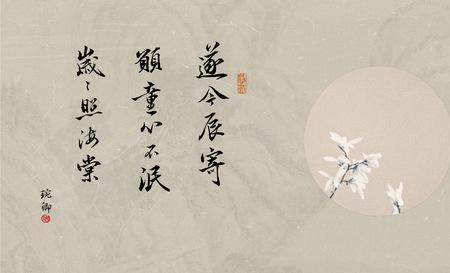 遂今辰寄
願童心不泯
歲々照海棠
琬卿